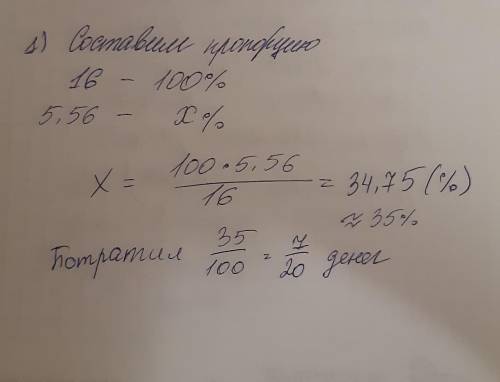 1) Составим пропорцию
16 - 100%
5,56 - x%
X = 100 • 5,56 / 16 = 34,75 (%)
≈ 35%
Потратил 35/100 = 7/20 денег